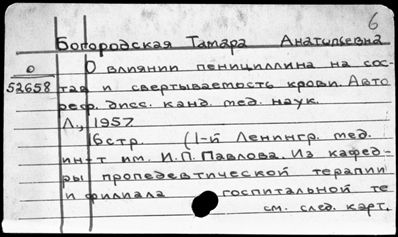 6
Богородская Тамара Анатольевна
О О влиянии пенициллина на сос-
52658 тав и свертываемость крови. Авто
реф. дисс. канд. мед. наук.
Л., 1957.
16 стр. (1-й Ленингр. мед.
ин-т им. И.П. Павлова. Из кафед-
ры пропедевтической терапии
и филиала госпитальной те
см. след. карт.